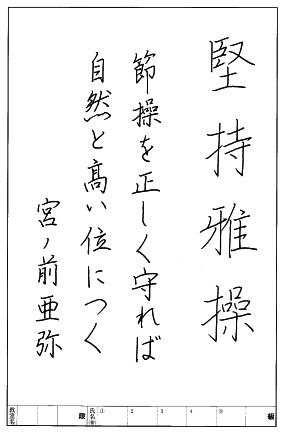 堅持雅操
節操を正しく守れば
自然と高い位につく
宮ノ前亜弥
級 ⑤ 4 3 2 ① 氏名 段 教室名